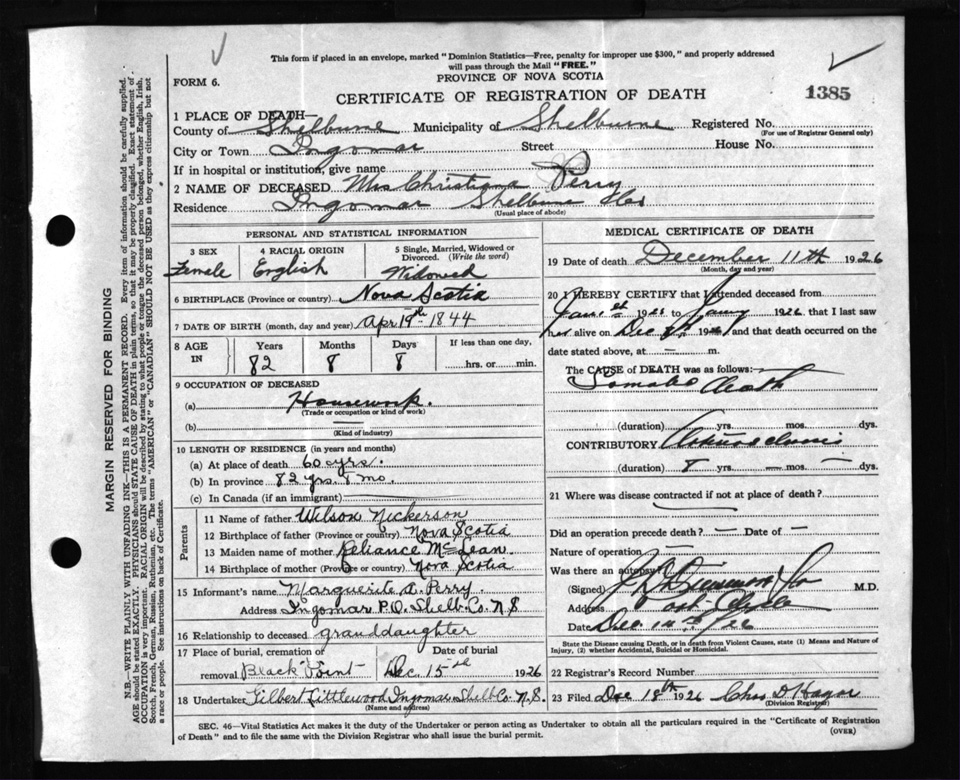 This form if placed in an envelope, marked "Dominion Statistics—Free, penalty for improper use $300," and properly addressed
will pass through the Mail "FREE."
FORM 6.
PROVINCE OF NOVA SCOTIA
CERTIFICATE OF REGISTRATION OF DEATH
1385
1 PLACE OF DEATH—
County of Shelburne Municipality of Shelburne Registered No.
(For use of Registrar General only)
City or Town Ingomar Street House No.
If in hospital or institution, give name
2 NAME OF DECEASED Mrs Christiana Perry
Residence Ingomar Shelburne
(Usual place of abode)
PERSONAL AND STATISTICAL INFORMATION
3 SEX 4 RACIAL ORIGIN 5 Single, Married, Widowed or
Divorced. (Write the word)
Female English Widowed
6 BIRTHPLACE (Province or country) Nova Scotia
7 DATE OF BIRTH (month, day and year) Apr 19th 1844
8 AGE IN Years Months Days If less than one day,
82 8 8 hrs. or min.
9 OCCUPATION OF DECEASED
(a) Housework.
(Trade or occupation or kind of work)
(b) —
(Kind of industry)
10 LENGTH OF RESIDENCE (in years and months)
(a) At place of death 60 yrs.
(b) In province 82 yrs. 8 mo.
(c) In Canada (if an immigrant)
Parents
11 Name of father Wilson Nickerson
12 Birthplace of father (Province or country) Nova Scotia
13 Maiden name of mother Reliance McLean.
14 Birthplace of mother (Province or country) Nova Scotia
15 Informant's name Marguerite A. Perry.
Address Ingomar P.O. Shelb. Co. N.S
16 Relationship to deceased granddaughter
17 Place of burial, cremation or Date of burial
removal Black Point Dec 15th 1926
18 Undertaker Gilbert Littlewood Ingomar Shelb Co. N.S.
(Name and address)
MEDICAL CERTIFICATE OF DEATH
19 Date of death December 11th 1926
(Month, day and year)
20 I HEREBY CERTIFY that I attended deceased from
192 to 1926 that I last saw
her alive on Dec 192 and that death occurred on
date stated above, at — m.
The CAUSE of DEATH was as follows:
death
(duration) yrs. mos. dys.
CONTRIBUTORY
(duration) 8 yrs. — mos. — dys.
21 Where was disease contracted if not at place of death?
Did an operation precede death? — Date of —
Nature of operation —
Was there an autopsy?
(Signed) M.D.
Address
Date Dec 14th/26
State the Disease causing Death, or in death from Violent Causes, state (1) Means and Nature of
Injury, (2) whether Accidental, Suicidal or Homicidal.
22 Registrar's Record Number
23 Filed Dec 18th 1926 Chas D Hagar
(Division Registrar)
SEC. 46—Vital Statistics Act makes it the duty of the Undertaker or person acting as Undertaker to obtain all the particulars required in the "Certificate of Registration
of Death" and to file the same with the Division Registrar who shall issue the burial permit.
(OVER)
MARGIN RESERVED FOR BINDING
N.B.—WRITE PLAINLY WITH UNFADING INK—THIS IS A PERMANENT RECORD. Every item of information should be carefully supplied.
AGE should be stated EXACTLY. PHYSICIANS should STATE CAUSE OF DEATH in plain terms, so that it may be properly classified. Exact statement of
OCCUPATION is very important. RACIAL ORIGIN will be described by stating to what people or tongue the deceased person belonged, whether English, Irish,
Scotch, French, German, Russian, Ruthenian, etc. The terms "AMERICAN" or "CANADIAN" SHOULD NOT BE USED as they express citizenship but not
a race or people. See instructions on back of Certificate.